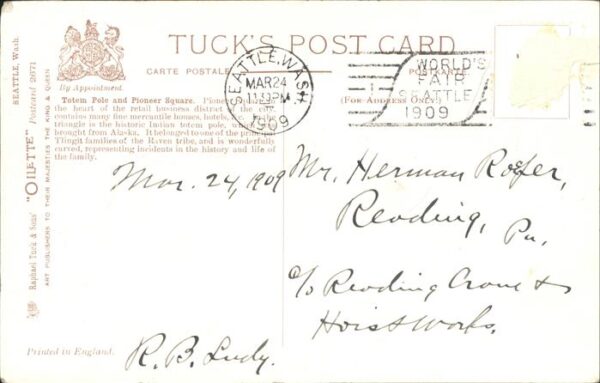 TUCK'S POST CARD
CARTE POSTALE
(FOR ADDRESS ONLY)
By Appointment
Totem Pole and Pioneer Square. Pioneer
the heart of the retail business district of the
contains many fine mercantile houses, hotels,
triangle is the historic Indian totem pole,
brought from Alaska. It belonged to one of the
Tlingit families of the Raven tribe, and is wonderfully
carved, representing incidents in the history and life of
the family.
SEATTLE, WASH.
MAR 24
PM
1909
WORLD'S
FAIR
SEATTLE
1909
SEATTLE, Wash.
"OILETTE" Postcard 2671
Raphael Tuck & Sons'
ART PUBLISHERS TO THEIR MAJESTIES THE KING & QUEEN
Mar. 24, 1909
R. B. Ludy.
Mr. Herman
Reading,
Pa.
c/o Reading Crane &
Hoist Works.
Printed in England.